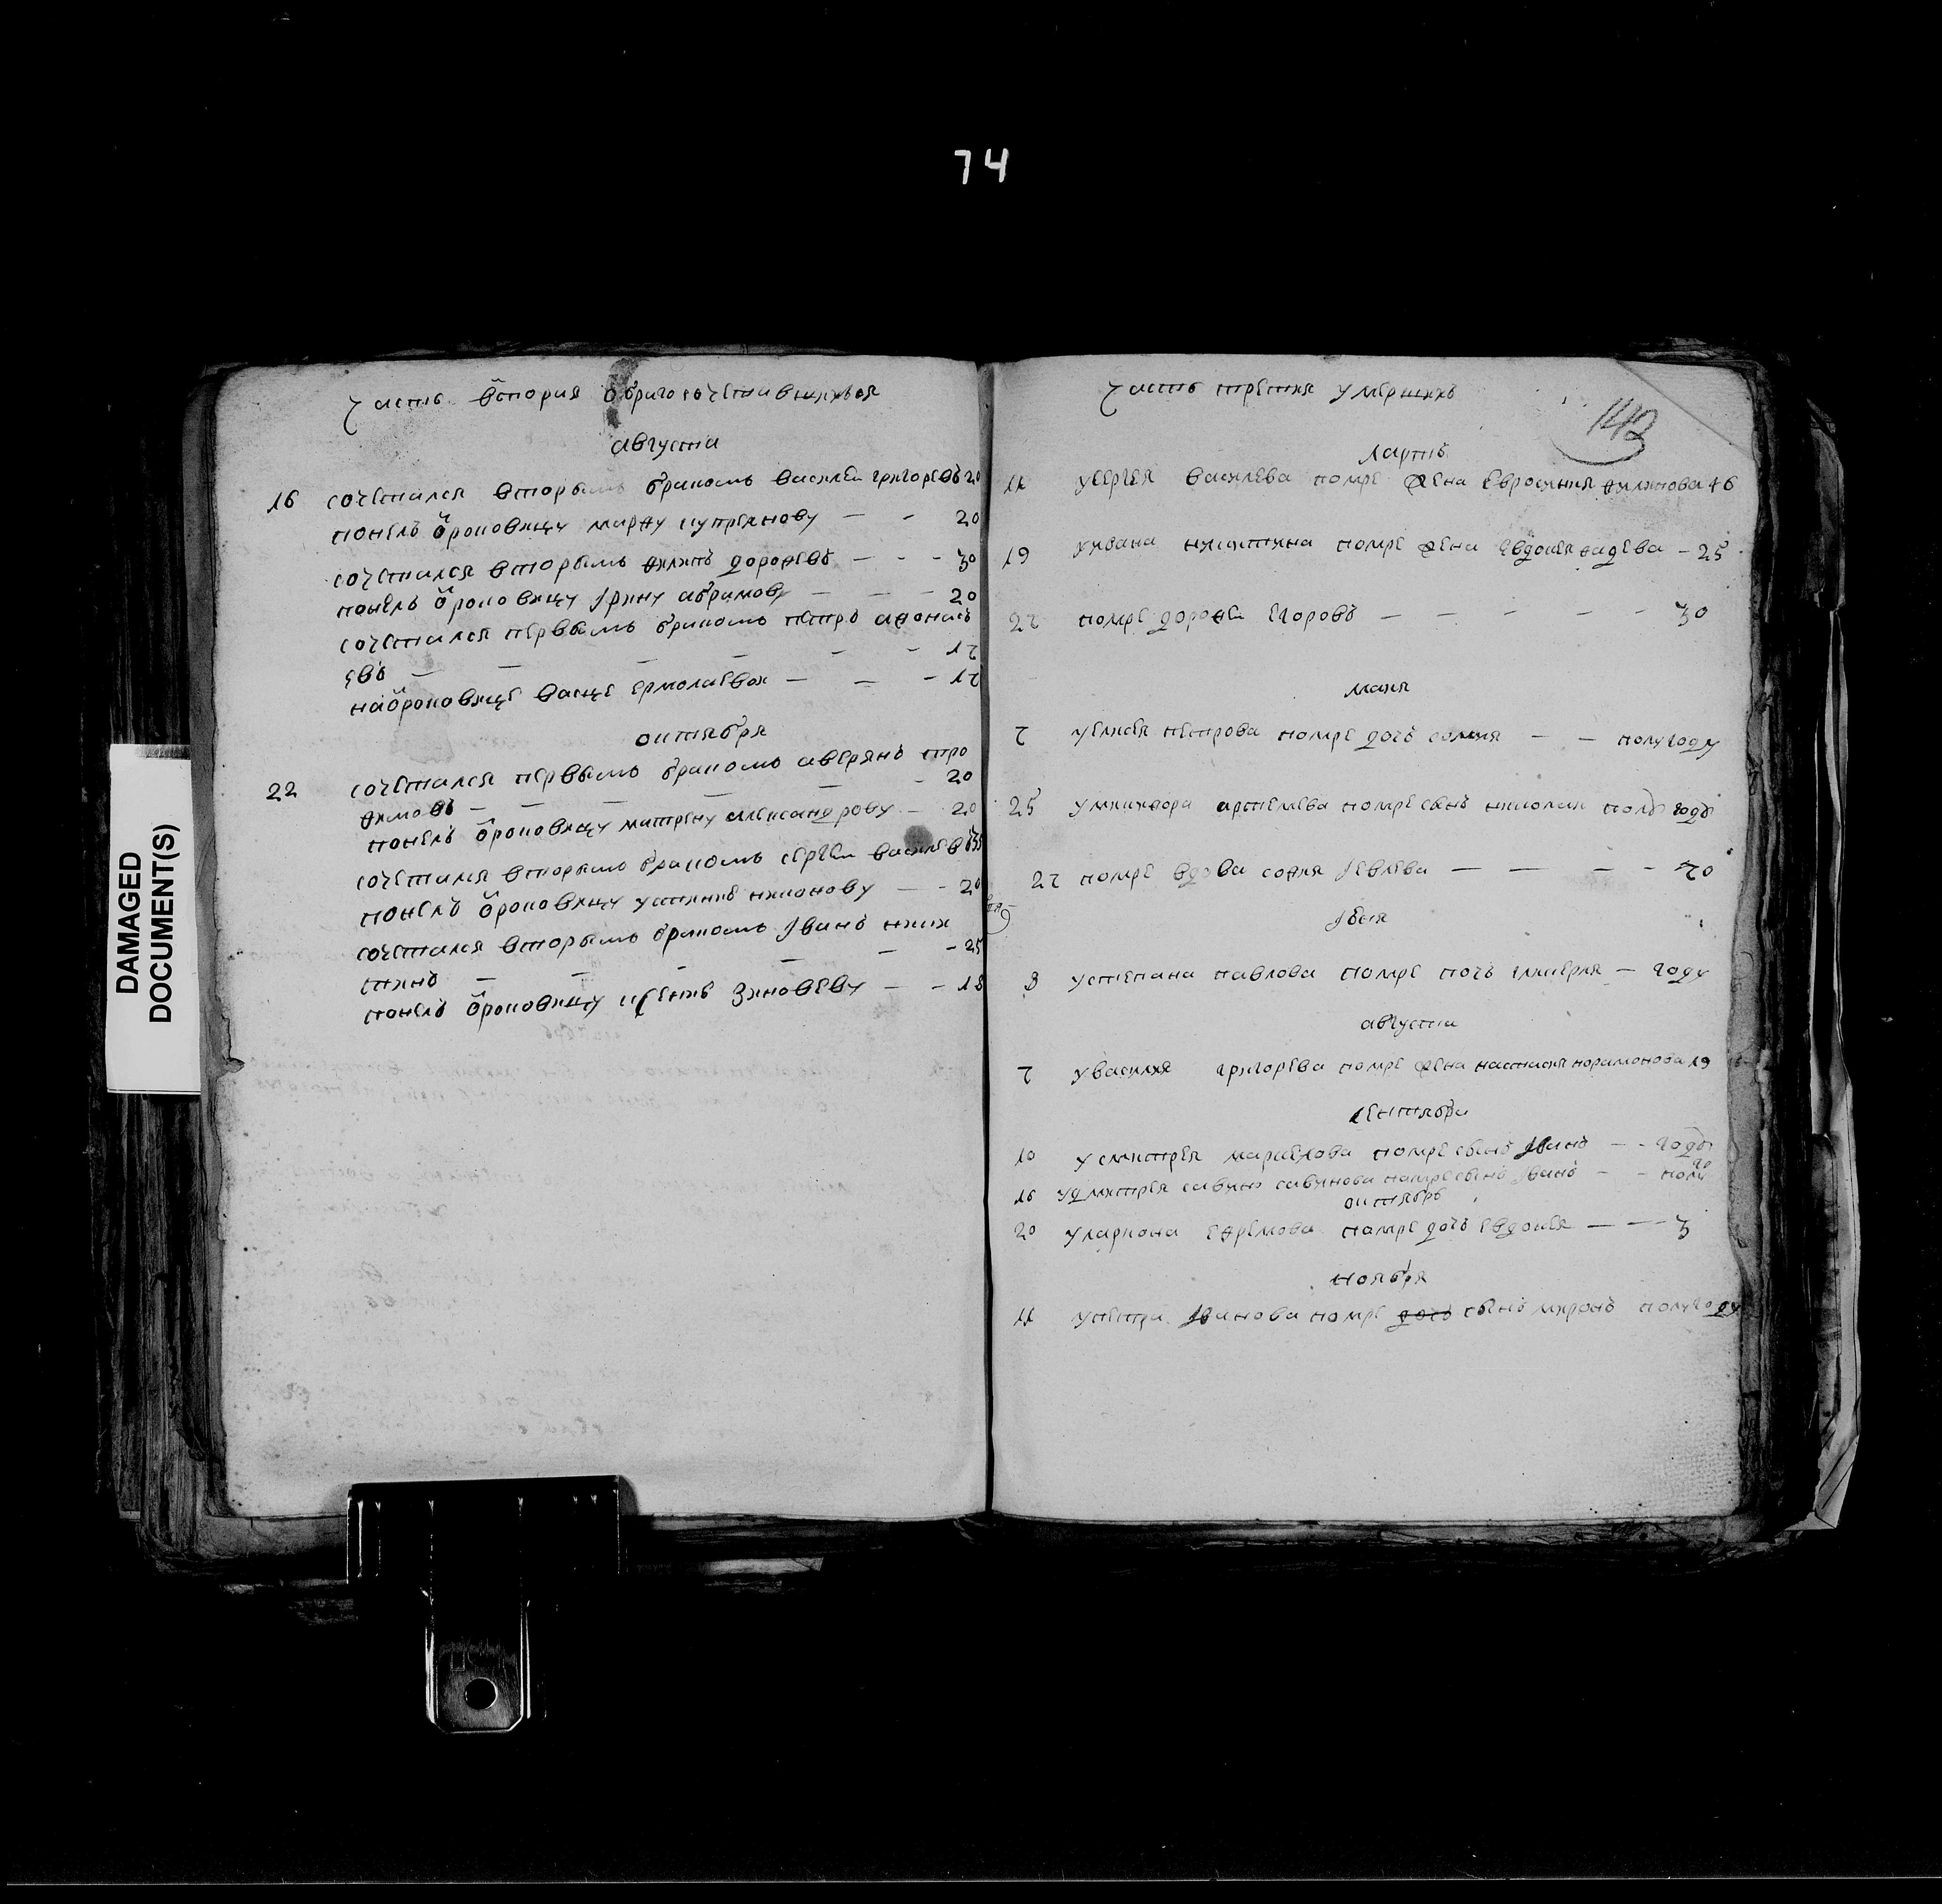 74
DAMAGED
DOCUMENT(S)
часть вторая о бракосочетавшихся
августа
16 сочетался вторымъ бракомъ василеи григоревъ 20
понелъ ѡроковицу марѳу купреянову — - 20
сочетался вторымъ ѳилипъ дороѳевъ — - - 30
понелъ ѡроковицу Iрину абрамову — - - 20
сочетался первымъ бракомъ петръ аѳонась
евъ — — — — - - 17
на ѡроковице васце ермолаевои — — - 17
октября
22 сочетался первымъ бракомъ аверянъ тро
ѳимовъ — — — — — - 20
понелъ ѡроковицу матрену александрову — 20
сочетался вторымъ бракомъ сергеи василевъ 35
понелъ ѡроковицу устинью никонову — - 20
сочетался вторымъ бракомъ Iванъ ники
тинъ — — — — — - 25
понелъ ѡроковицу ксению зиновеву — - 18
часть третия умершихъ
143
мартъ
11 у сергея василева помре жена евросиния ѳилипова 46
19 у ивана никитина помре жена евдокея ѳадева - 25
27 помре дороѳеи егоровъ — — — — - 30
маия
7 у елисея петрова помре дочь софия — — полугоду
25 у никиѳора артемева помре сынъ николаи полъ годъ
27 помре вдова соѳия Iевлева — — — - 70
Iюля
8 у степана павлова помре дочь гликерия — году
августа
7 у василия григорева помре жена настасия парамонова 19
сентября
10 у дмитрея маркелова помре сынъ Iванъ — - годъ
16 у дмитрея савинова помре сынъ Iванъ — - полу
октябрь
20 у лариона еѳремова помре дочь евдокея — — 3
ноября
11 у петра Iванова помре дочь сынъ миронъ полугоду